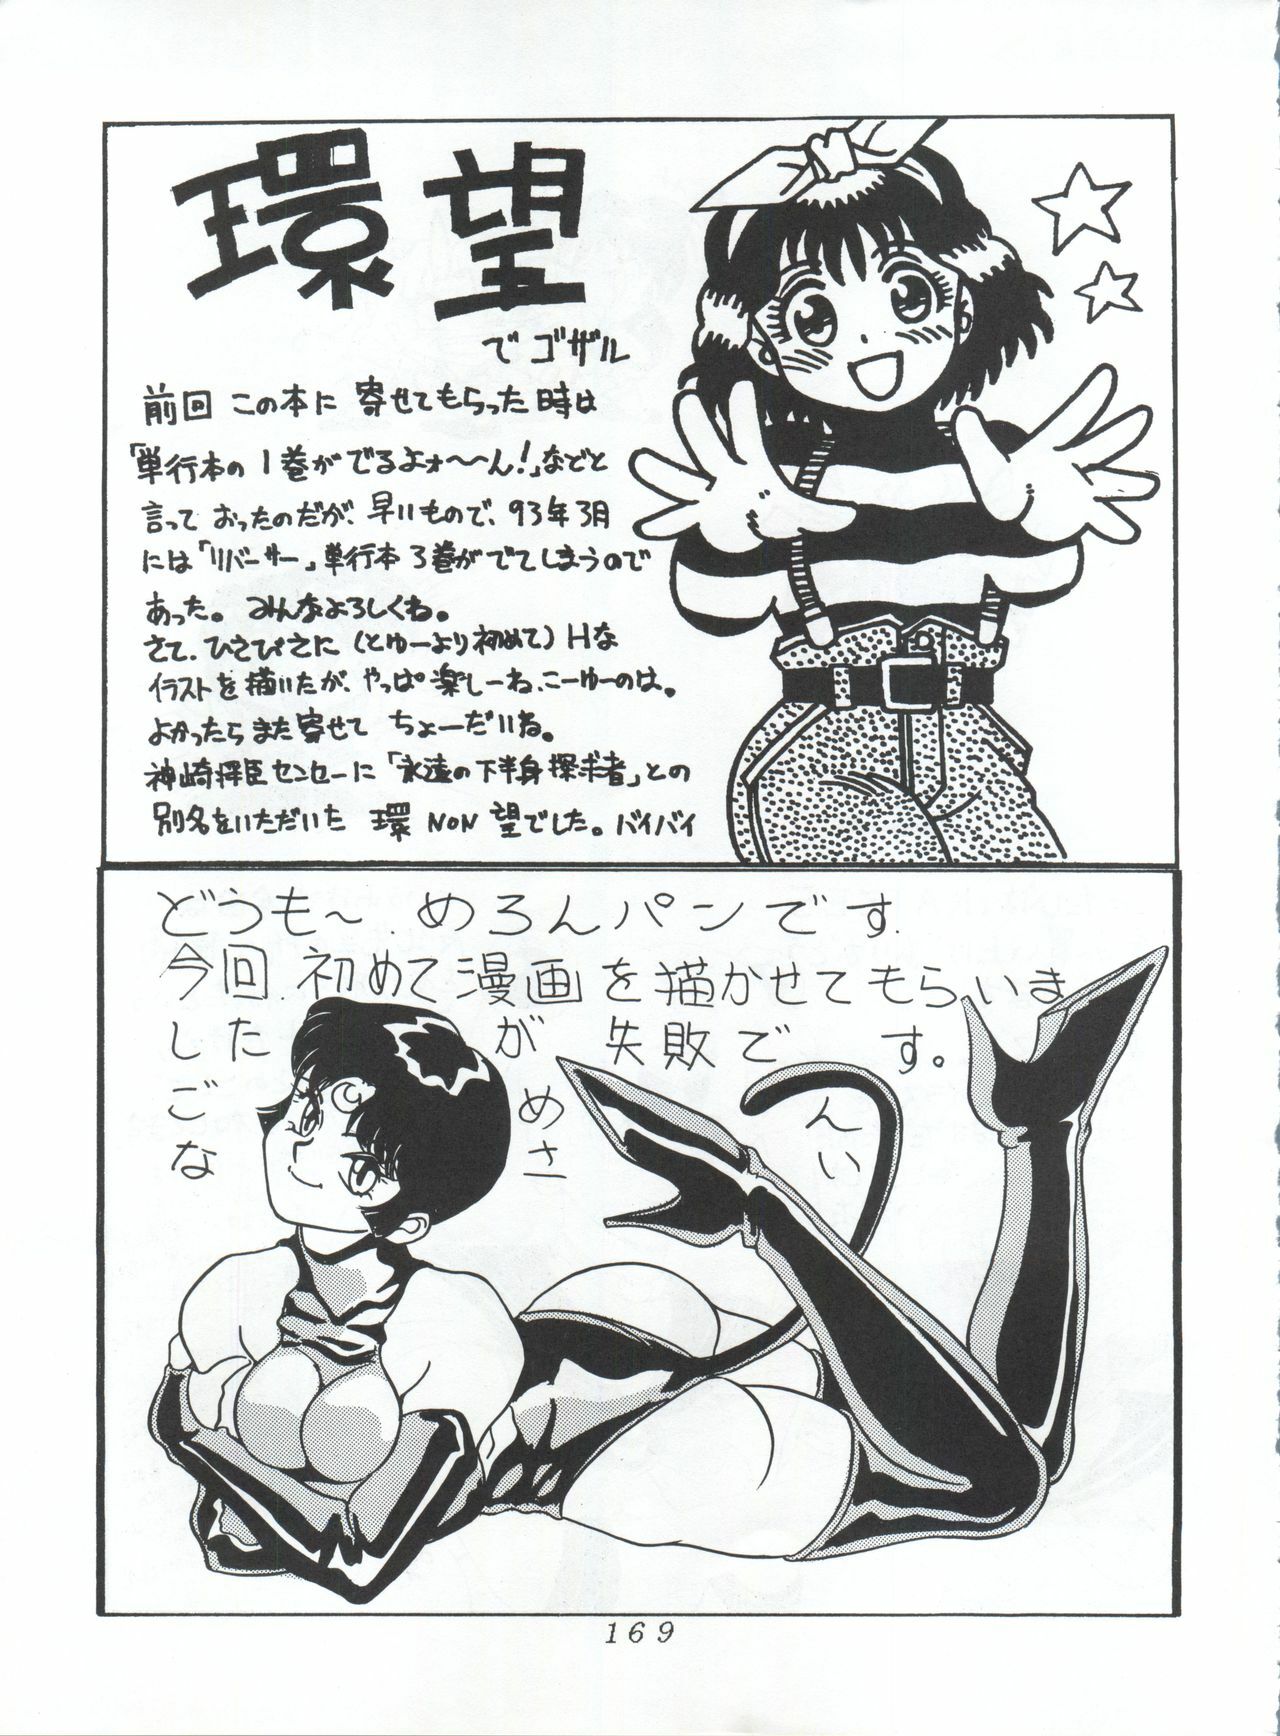 環望
でゴザル
前回 この本に 寄せてもらった時は
「単行本の1巻がでるよォ〜〜ん!」などと
言って おったのだが、早いもので、93年3月
には「リバーサー」単行本3巻がでてしまうので
あった。みんなよろしくね。
さて、ひさびさに(とゆーより初めて)Hな
イラストを描いたが、やっぱ楽しーね、こーゆーのは。
よかったら また寄せて ちょーだいね。
神崎将臣センセーに「永遠の下半身探求者」との
別名をいただいた 環 NON 望でした。バイバイ
どうも〜.めろんパンです.
今回.初めて漫画を描かせてもらいま
したが失敗です。
ごめんな
さい
169